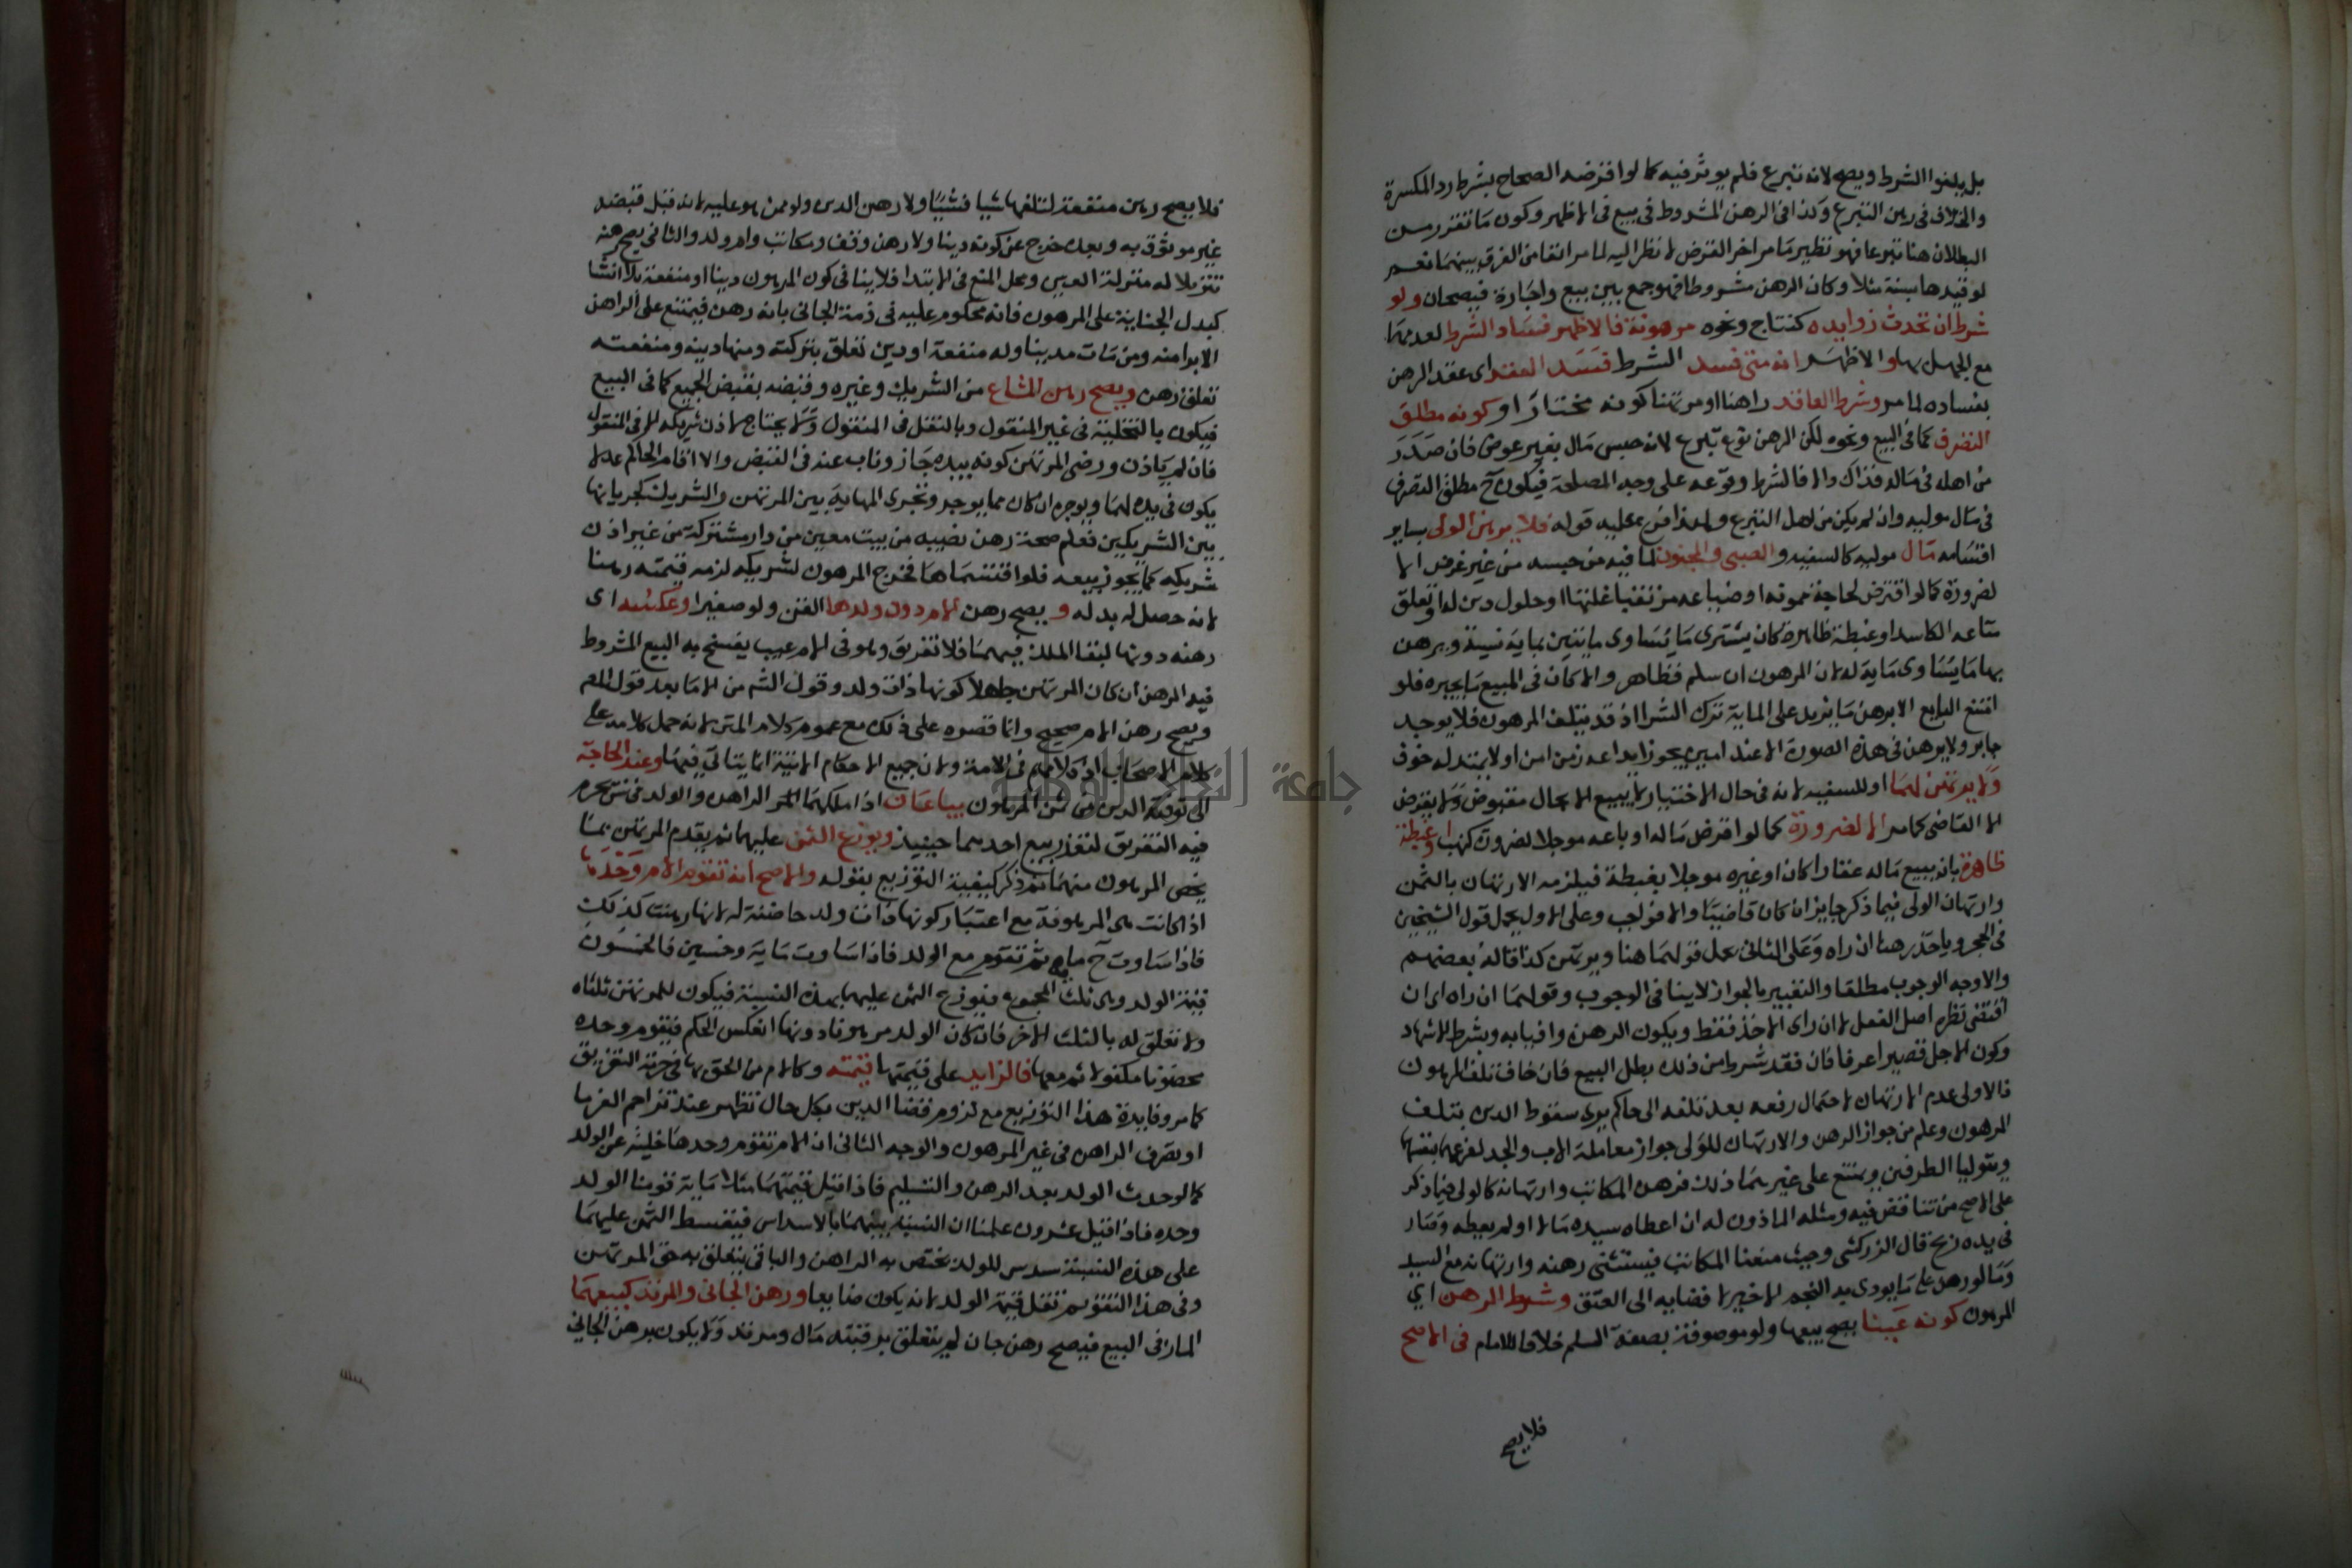 بل يلغوا الشرط ويصح لانه تبرع فلم يوثر فيه كما لو اقترضه الصحاح بشرط رد المكسرة
والخلاف في رهن التبرع وكذا في الرهن المشروط في بيع في الاظهر وكون ما تقرر من
البطلان هنا تبرعا فهو نظير ما مر اخر القرض لا نظر اليه لما مر انفا من الفرق بينهما نعم
لو قيدها بسنة مثلا وكان الرهن مشروطا فهو جمع بين بيع واجارة فيصحان ولو
شرط ان تحدث زوايده كنتاج ونحوه مرهونة فالاظهر فساد الشرط لعدمها
مع الجهل بها والاظهر انه متى فسد الشرط فسد العقد اي عقد الرهن
بفساده لما مر وشرط العاقد راهنا او مرتهنا كونه مختارا وكونه مطلق
التصرف كما في البيع ونحوه لكن الرهن نوع تبرع لانه حبس مال بغير عوض فان صدر
من اهله في ماله فذاك والا فالشرط وقوعه على وجه المصلحة فيكون ح مطلق التصرف
في مال موليه وان لم يكن من اهل التبرع ولهذا فرع عليه قوله فلا يرهن الولي بساير
اقسامه مال موليه كالسفيه والصبي والمجنون لما فيه من حبسه من غير عوض الا
لضرورة كما لو اقترض لحاجة نموته او ضياعه مرتقبا غلتها او حلول دين له او نفاق
متاعه الكاسد او غبطة ظاهرة كان يشتري ما يساوي مايتين بماية نسية ويرهن
بها ما يساوي ماية له لان المرهون ان سلم فظاهر والا كان في المبيع ما يجبره فلو
امتنع البايع الا برهن ما يزيد على الماية ترك الشرا اذ قد يتلف المرهون فلا يوجد
جابر ولا يرهن في هذه الصورة الا عند امين يجوز ايداعه زمن امن او لا يمتد له خوف
ولا يرتهن لهما او للسفيه لانه في حال الاختيار لا يبيع الا بحال مقبوض ولا يقرض
الا القاضي كما مر الا لضرورة كما لو اقرض ماله او باعه موجلا لضرورة كنهب او غبطة
ظاهرة بان يبيع ماله عقارا كان او غيره موجلا بغبطة فيلزمه الارتهان بالثمن
وارتهان الولي فيما ذكر جايز ان كان قاضيا والا فواجب وعلى الاول يحمل قول الشيخين
في الحجر وياخذ رهنا ان راه وعلى الثاني يحمل قولهما هنا ويرتهن كذا قاله بعضهم
والاوجه الوجوب مطلقا والتعبير بالجواز لا ينافي الوجوب وقولهما ان راه اي ان
اقتضى نظره اصل الفعل لا ان راى الاخذ فقط ويكون الرهن وافيا به ويشرط الاشهاد
وكون الاجل قصيرا عرفا فان فقد شرط من ذلك بطل البيع فان خاف تلف المرهون
فالاولى عدم الارتهان لاحتمال رفعه بعد تلفه الى حاكم يرى سقوط الدين بتلف
المرهون وعلم من جواز الرهن والارتهان للولي جواز معاملة الاب والجد لفرعهما بنفسهما
ويتوليا الطرفين ويمتنع على غيرهما ذلك فرهن المكاتب وارتهانه كالولي فيما ذكر
على الاصح من تناقض فيه ومثله الماذون له ان اعطاه سيده مالا او لم يعطه وصار
في يده ربح قال الزركشي وحيث منعنا المكاتب فيستثنى رهنه وارتهانه مع السيد
وما لو رهن على ما يودي به النجم الاخير لافضايه الى العتق وشرط الرهن اي
المرهون كونه عينا يصح بيعها ولو موصوفة بصفة السلم خلافا للامام في الاصح
فلا يصح
فلا يصح رهن منفعة لتلفها شيا فشيا ولا رهن الدين ولو ممن هو عليه لانه قبل قبضه
غير موثوق به وبعده خرج عن كونه دينا ولا رهن وقف ومكاتب وام ولد والثاني يصح رهنه
تنزيلا له منزلة العين ومحل المنع في الابتدا فلا ينافي كون المرهون دينا او منفعة بلا انشا
كبدل الجناية على المرهون فانه محكوم عليه في ذمة الجاني بانه رهن فيمتنع على الراهن
الابرا منه ومن مات مدينا وله منفعة او دين تعلق بتركته ومنها دينه ومنفعته
تعلق رهن ويصح رهن المشاع من الشريك وغيره وقبضه بقبض الجميع كما في البيع
فيكون بالتخلية في غير المنقول وبالنقل في المنقول ولا يحتاج لاذن شريكه الا في المنقول
فان لم ياذن ورضي المرتهن كونه بيده جاز وناب عنه في القبض والا اقام الحاكم عدلا
يكون في يده لهما ويوجره ان كان مما يوجر وتجري المهاياة بين المرتهن والشريك كجريانها
بين الشريكين فعلم صحة رهن نصيبه من بيت معين من دار مشتركة من غير اذن
شريكه كما يجوز بيعه فلو اقتسماها فخرج المرهون لشريكه لزمه قيمته رهنا
لانه حصل له بدله ويصح رهن الام دون ولدها القن ولو صغيرا وعكسه اي
رهنه دونها لبقا الملك فيهما فلا تفريق وهو في الام عيب يفسخ به البيع المشروط
فيه الرهن ان كان المرتهن جاهلا كونها ذات ولد وقول الشم من الاما بعد قول المم
ويصح رهن الام صحيح وانما قصره على ذلك مع عموم كلام المتن لانه حمل كلامه على
كلام الاصحاب اذ كلامهم في الامة ولان جميع الاحكام الاتية انما يتاتى فيها وعند الحاجة
الى توفية الدين من ثمن المرهون يباعان اذا ملكهما الراهن والولد في سن يحرم
فيه التفريق لتعذر بيع احدهما حينيذ ويوزع الثمن عليهما ثم يقدم المرتهن بما
يخص المرهون منهما ثم ذكر كيفية التوزيع بقوله والاصح انه تقوم الام وحدها
اذا كانت هي المرهونة مع اعتبار كونها ذات ولد حاضنة له لانها رهنت كذلك
فاذا ساوت ح ماية ثم تقوم مع الولد فاذا ساوت ماية وخمسين فالخمسون
قيمة الولد وهي ثلث المجموع فيوزع الثمن عليهما بهذه النسبة فيكون للمرتهن ثلثاه
ولا تعلق له بالثلث الاخر فان كان الولد مرهونا دونها انعكس الحكم فيقوم وحده
محضونا مكفولا ثم معها فالزايد على قيمتها قيمته وكالام من الحق بها في حرمة التفريق
كما مر وفايدة هذا التوزيع مع لزوم قضا الدين بكل حال تظهر عند تزاحم الغرما
او تصرف الراهن في غير المرهون والوجه الثاني ان الام تقوم وحدها خلية عن الولد
كما لو حدث الولد بعد الرهن والتسليم فاذا قيل قيمتها مثلا ماية قومنا الولد
وحده فاذا قيل عشرون علمنا ان النسبة بينهما بالاسداس فيقسط الثمن عليهما
على هذه النسبة سدس للولد يختص به الراهن والباقي يتعلق به حق المرتهن
وفي هذا التقويم تقل قيمة الولد لانه يكون ضايعا ورهن الجاني والمرتد كبيعهما
المار في البيع فيصح رهن جان لم يتعلق برقبته مال ومرتد ولا يكون برهن الجاني
جامعة النجاح الوطنية